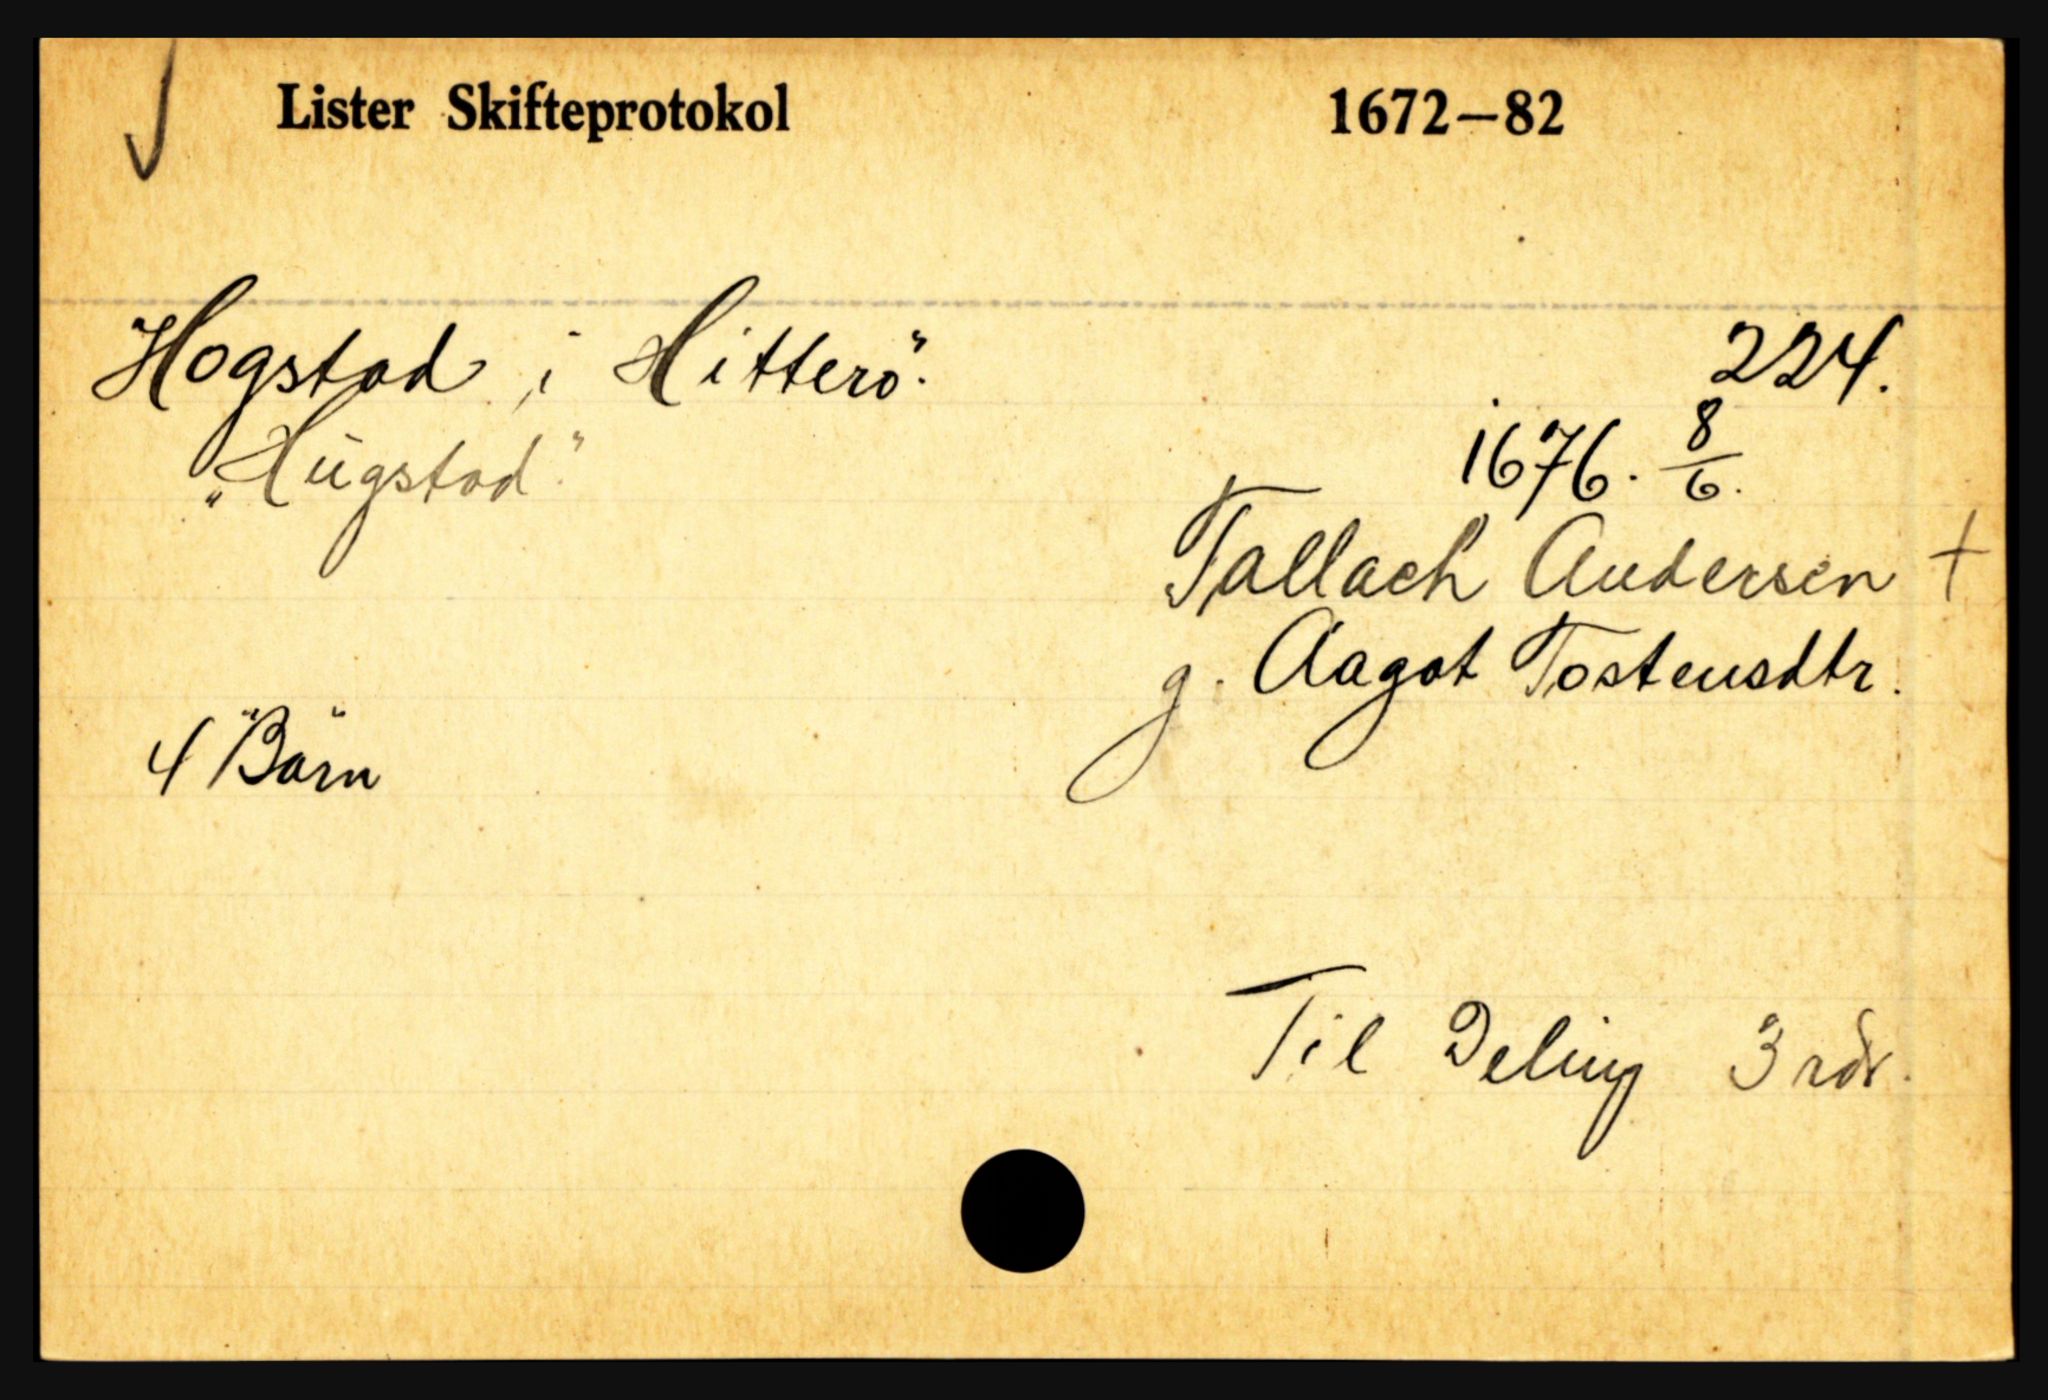 Lister Skifteprotokol 1672–82
Hogstad i Hitterö. 224.
„Hügstad" 1676. 8/6.
Tallach Andersen +
g. Aagot Tostensdtr.
4 Börn
Til Deling 3 rdr.